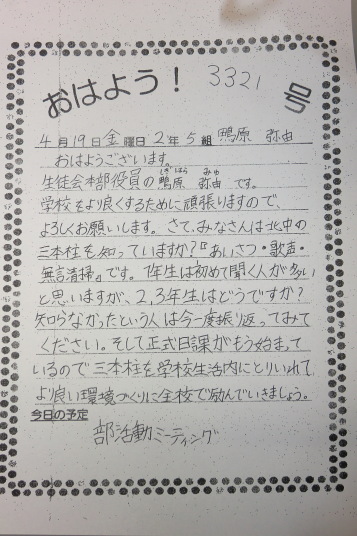 おはよう！ 3321 号
4月19日金曜日2年5組 鴨原 弥由
おはようございます。
生徒会本部役員の鴨原 弥由 です。
学校をより良くするために頑張りますので、
よろしくお願いします。さて、みなさんは北中の
三本柱を知っていますか?『あいさつ・歌声・
無言清掃』です。1年生は初めて聞く人が多い
と思いますが、2,3年生はどうですか?
知らなかったという人は今一度振り返ってみて
ください。そして正式日課がもう始まって
いるので三本柱を学校生活内にとりいれて
より良い環境づくりに全校で励んでいきましょう。
今日の予定
部活動ミーティング